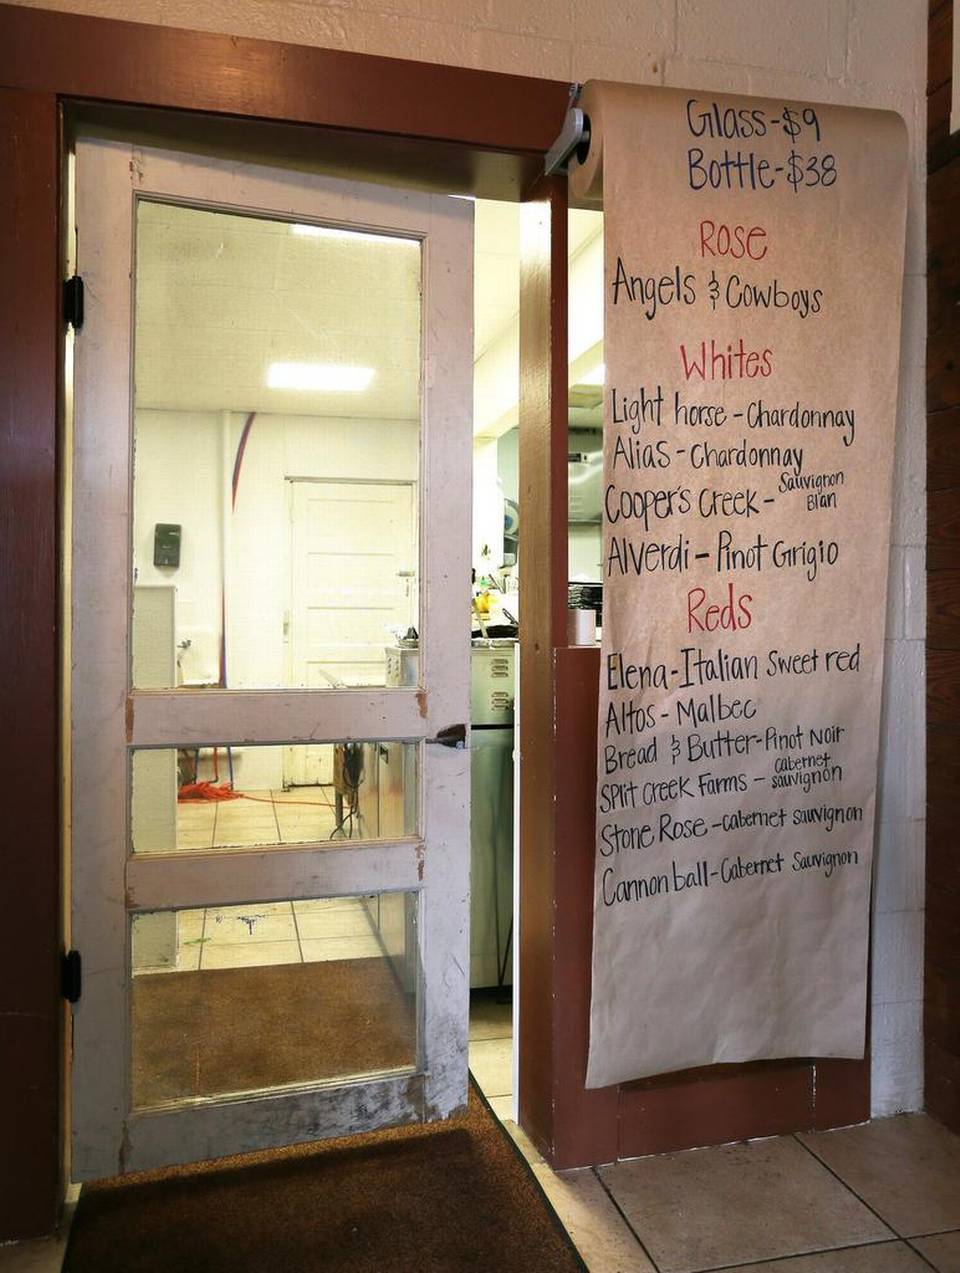 Glass-$9
Bottle-$38
Rose
Angels & Cowboys
Whites
Light horse - Chardonnay
Alias - Chardonnay
Cooper's Creek - Sauvignon Blan
Alverdi - Pinot Grigio
Reds
Elena-Italian Sweet red
Altos - Malbec
Bread & Butter-Pinot Noir
Split Creek Farms - cabernet sauvignon
Stone Rose -cabernet sauvignon
Cannonball-Cabernet Sauvignon